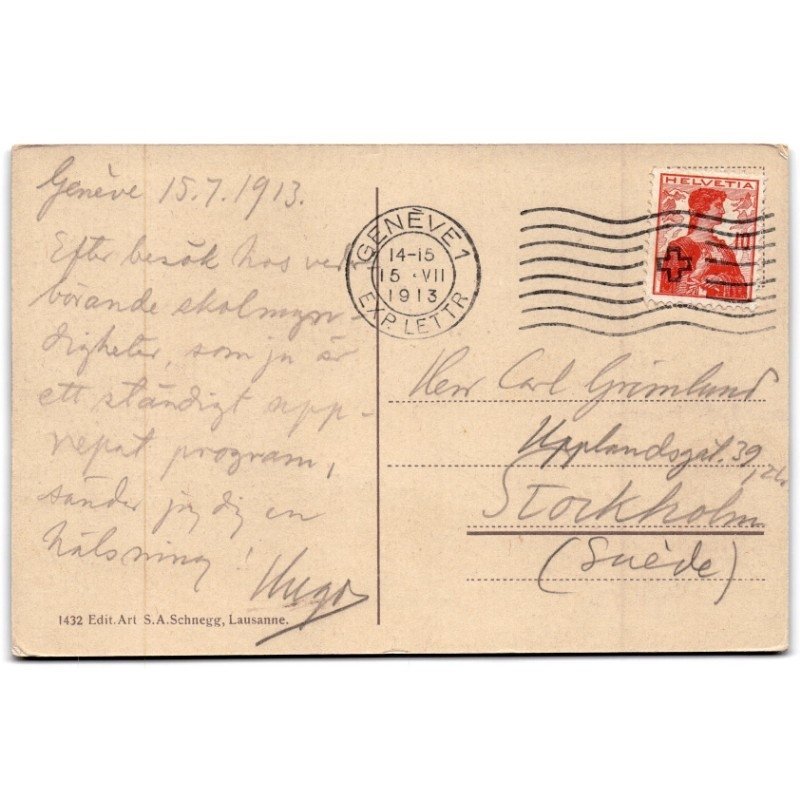 Genève 15.7.1913.
Efter besök hos ved-
börande skolmyn-
digheter, som ju är
ett ständigt upp-
repat program,
sänder jag dig en
hälsning!
Hugo
1432 Edit. Art S.A. Schnegg, Lausanne.
GENÈVE 1
14-15
15 · VII
1913
EXP. LETTR.
HELVETIA
Herr Carl Grimlund
Upplandsgat. 39,
Stockholm
(Suède)